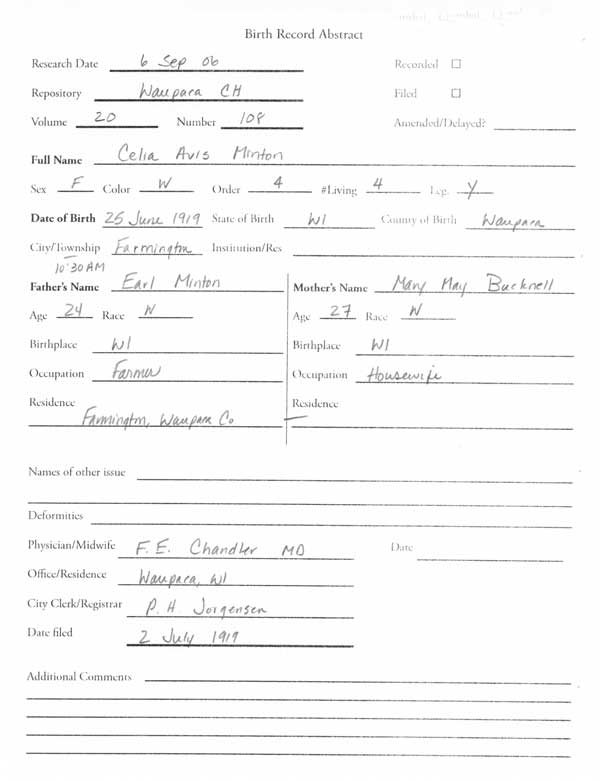 Birth Record Abstract
Research Date 6 Sep 06 Recorded ☐
Repository Waupara CH Filed ☐
Volume 20 Number 108 Amended/Delayed?
Full Name Celia Avis Minton
Sex F Color W Order 4 #Living 4 Leg. Y
Date of Birth 25 June 1919 State of Birth WI County of Birth Waupara
City/Township Farmington Institution/Res
10:30 AM
Father's Name Earl Minton Mother's Name Mary May Bucknell
Age 24 Race W Age 27 Race W
Birthplace WI Birthplace WI
Occupation Farmer Occupation Housewife
Residence Residence
Farmington, Waupara Co —
Names of other issue
Deformities
Physician/Midwife F. E. Chandler MD Date
Office/Residence Waupara, WI
City Clerk/Registrar P. H Jorgensen
Date filed 2 July 1919
Additional Comments